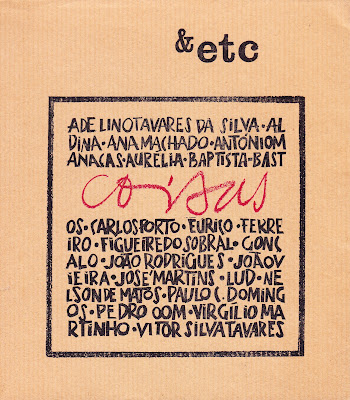 & etc
ADELINO TAVARES DA SILVA · AL
DINA · ANA MACHADO · ANTÓNIO M
ANACAS · AURELIA · BAPTISTA-BAST
coisas
OS · CARLOS PORTO · EURICO · FERRE
IRO · FIGUEIREDO SOBRAL · GONÇ
ALO · JOÃO RODRIGUES · JOÃO V
IEIRA · JOSÉ MARTINS · LUD · NE
LSON DE MATOS · PAULO C. DOMING
OS · PEDRO OOM · VIRGILIO MA
RTINHO · VITOR SILVA TAVARES